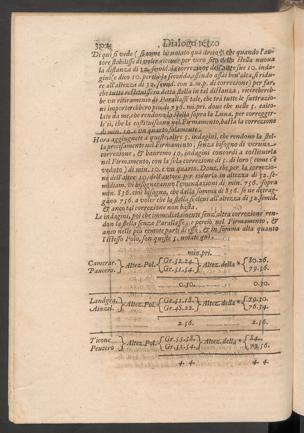 Dialogo terzo
Di qui si vede (si come ho notato quà dietro) che quando l'au-
tore stabilisce di voler ascriver per vero sito della Stella nuova
la distanza di 32. semid. la correzzione dell'altre sue 10. inda-
gini (e dico 10. perchè la seconda, essendo assai ben'alta, si ridu-
ce all'altezza di 32. semid. con 2. m.p. di correzzione) per far,
che tutte restituissero detta stella in tal distanza, ricercherebb-
be un ritiramento di Parallassi tale, che trà tutte le suttrazio-
ni importerebbero più di 756. mi.pri. dove che nelle 5. calco-
late da me, che rendono la stella sopra la Luna, per correger-
le sì, che la costituissero nel Firmamento, basta la correzzione
di min. 10. e un quarto solamente.
Hora aggiugnete a queste altre 5. indagini, che rendono la stel-
la precisamente nel Firmamento, senza bisogno di veruna
correzzione, & haveremo 10. indagini concordi a costituirla
nel Firmamento, con la sola correzzione di 5. di loro (come s'è
veduto) di min. 10. e un quarto. Dove, che per la correzzio-
ne dell'altre 10. dell'autore per ridurla in altezza di 32. se-
midiam. vi bisogneranno emendazioni di min. 756. sopra
min. 836. cioè bisogna, che dalla somma di 836. se ne detrag-
gano 756. a voler che la stella si elevi all'altezza di 32. semid.
& anco tal correzzione non basta.
Le indagini, poi che immediatamente senz'altra correzzione ren-
don la stella senza Parallasse, e perciò nel Firmamento, &
anco nelle più remote parti di esso, & in somma alta quanto
l'istesso Polo, son queste 5. notate qui.
min. pri.
Camerar. } Altez. Pol. { Gr. 52.24. } Altez. della * { 80.26.
Peucero. { Gr. 51.54. { 79.56.
0.30. 0.30.
Landgra. } Altez. Pol. { Gr. 51.18. } Altez. della * { 79.30.
Ainzel. { Gr. 48.22. { 76.34.
2.56. 2.56.
Ticone } Altez. Pol. { Gr. 55.58. } Altez. della * { 84.
Peucero { Gr. 51.54. { 79.56.
4. 4. 4. 4.